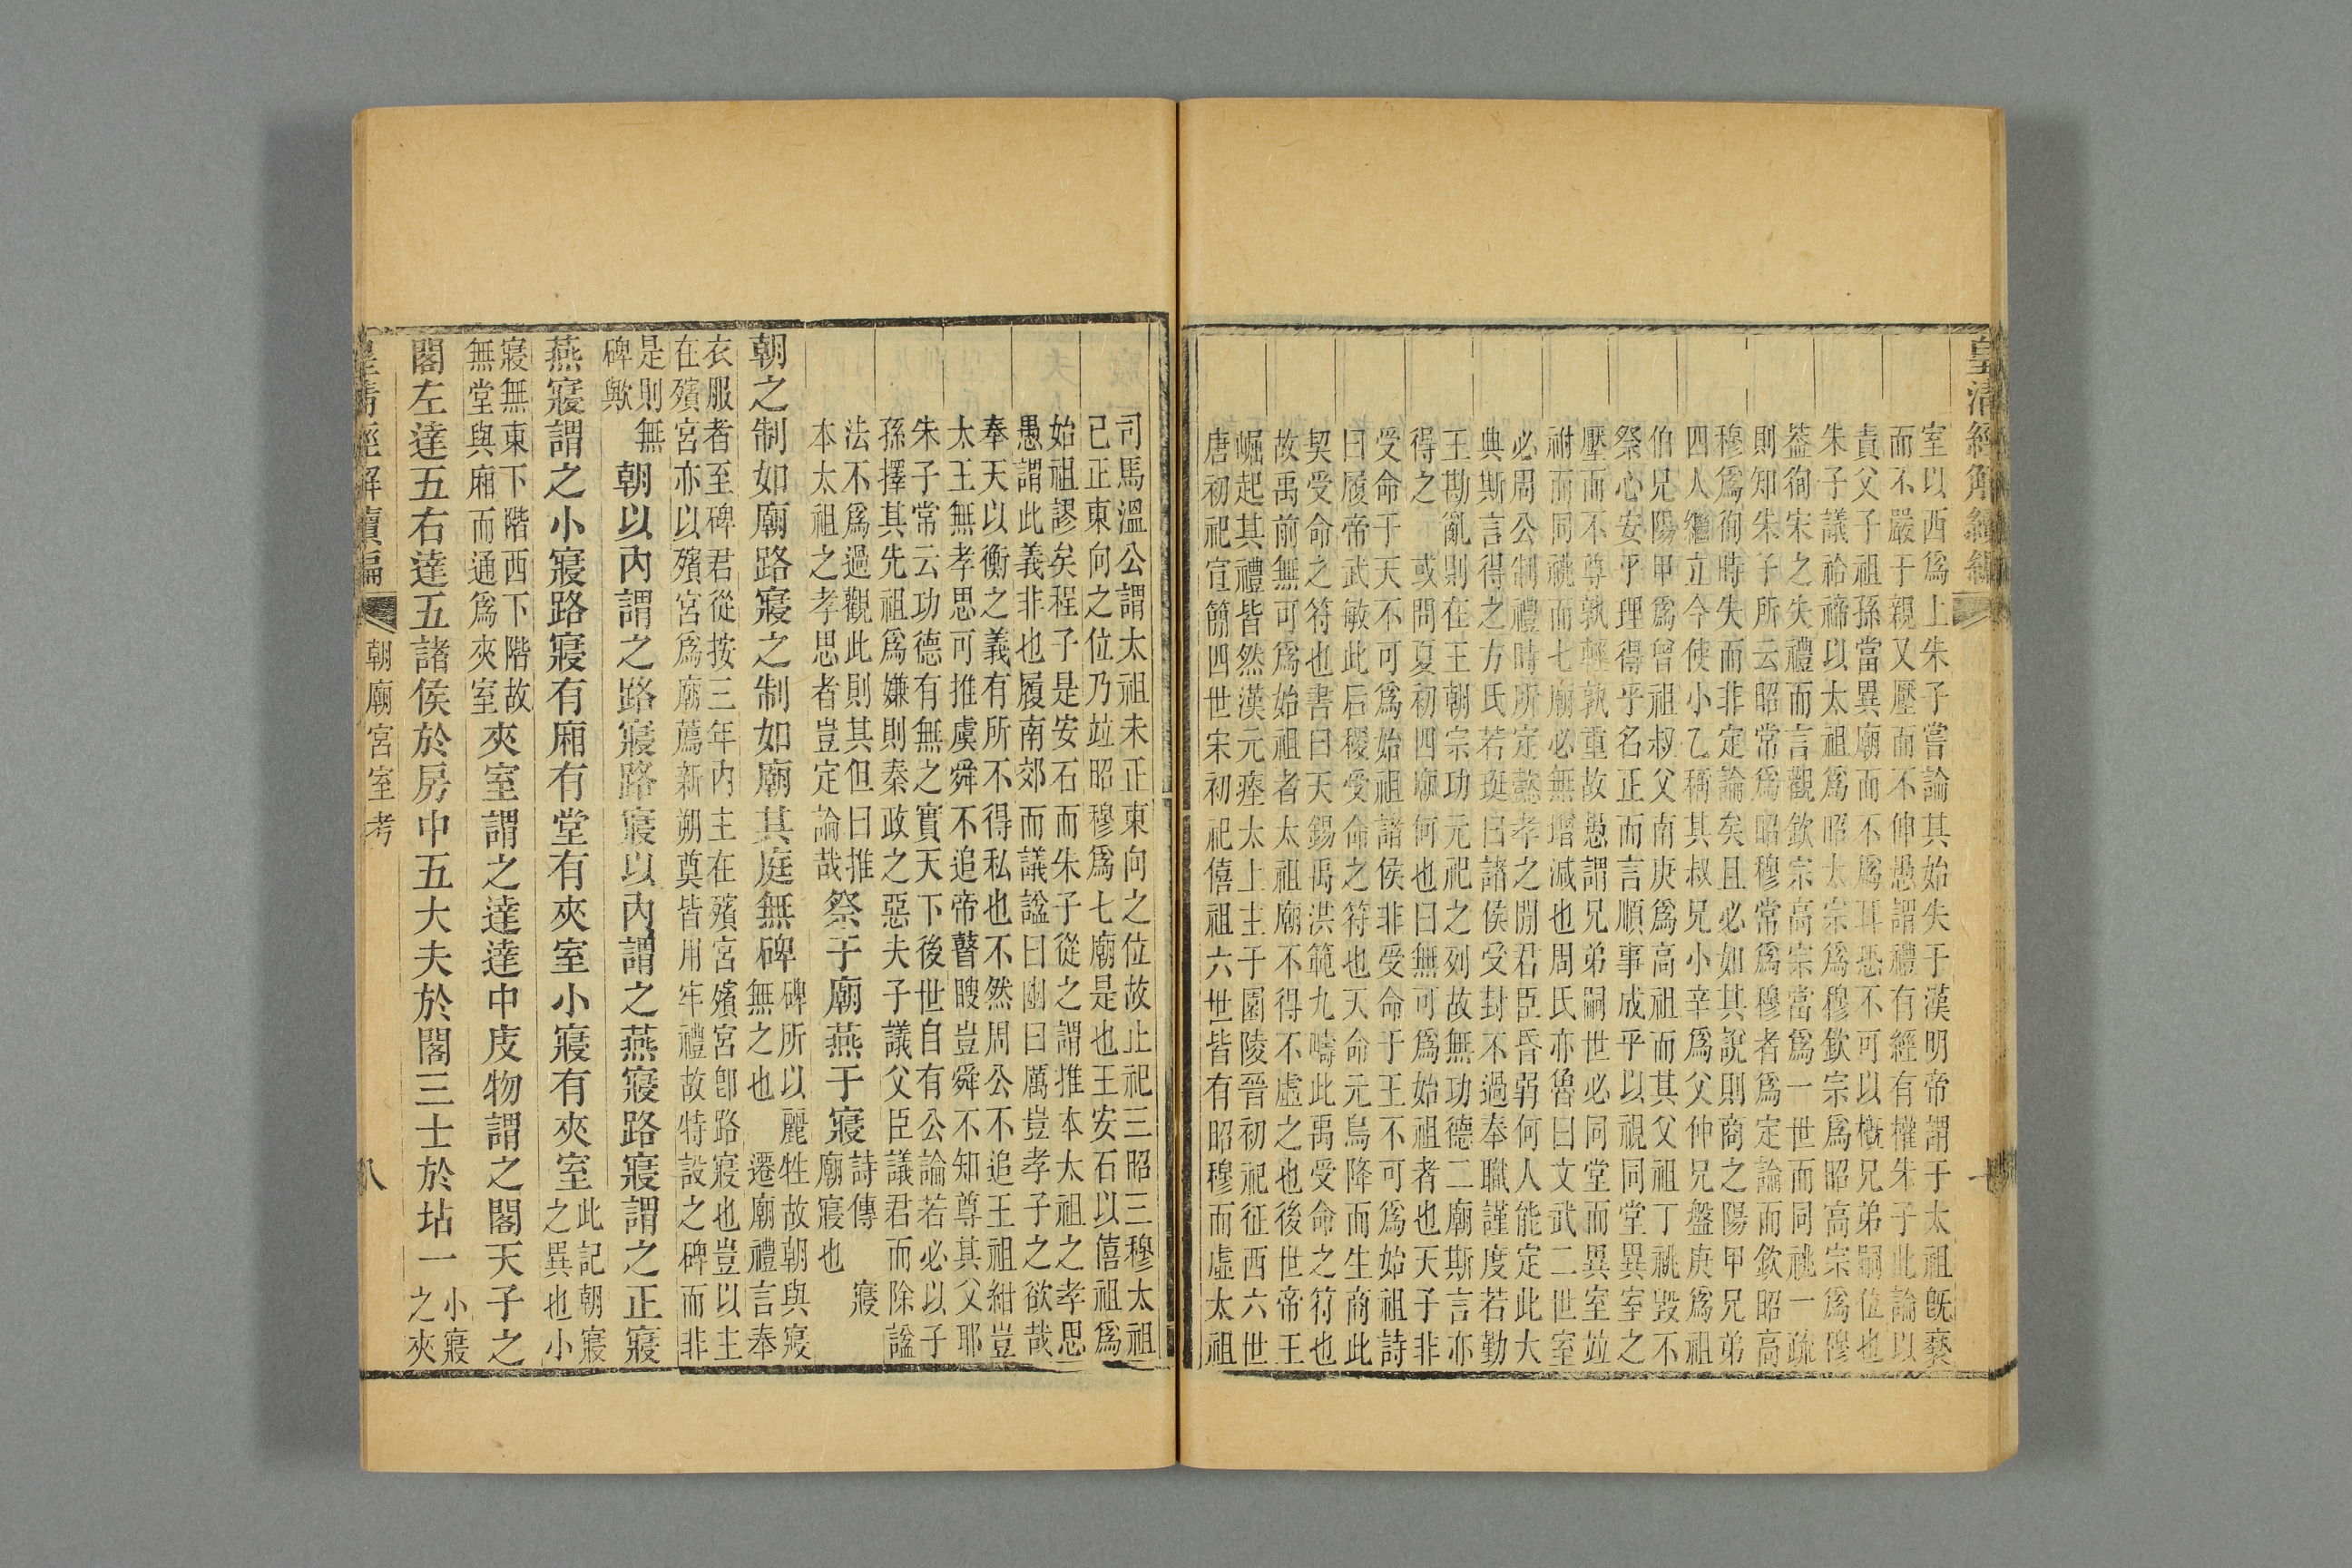 皇清經解續編
室以西爲上朱子嘗論其始失于漢明帝謂于太祖旣褻
而不嚴于親又壓而不伸愚謂禮有經有權朱子此論以
責父子祖孫當異廟而不爲耳恐不可以槪兄弟嗣位也
朱子議祫禘以太祖爲昭太宗爲穆欽宗爲昭高宗爲穆
葢徇宋之失禮而言觀欽宗高宗當爲一世而同祧一疏
則知朱子所云昭常爲昭穆常爲穆者爲定論而欽昭高
穆爲徇時失而非定論矣且必如其說則商之陽甲兄弟
四人繼立今使小乙稱其叔兄小辛爲父仲兄盤庚爲祖
伯兄陽甲爲曾祖叔父南庚爲高祖而其父祖丁祧毀不
祭心安乎理得乎名正而言順事成乎以視同堂異室之
壓而不尊孰輕孰重故愚謂兄弟嗣世必同堂而異室竝
祔而同祧而七廟必無增減也周氏亦魯曰文武二世室
必周公制禮時所定懿孝之閒君臣昏弱何人能定此大
典斯言得之方氏若珽曰諸侯受封不過奉職謹度若勤
王勘亂則在王朝宗功元祀之列故無功德二廟斯言亦
得之　或問夏初四廟何也曰無可爲始祖者也天子非
受命于天不可爲始祖諸侯非受命于王不可爲始祖詩
曰履帝武敏此后稷受命之符也天命元鳥降而生商此
契受命之符也書曰天錫禹洪範九疇此禹受命之符也
故禹前無可爲始祖者太祖廟不得不虛之也後世帝王
崛起其禮皆然漢元瘞太上主于園陵晉初祀征西六世
唐初祀宣簡四世宋初祀僖祖六世皆有昭穆而虛太祖
司馬溫公謂太祖未正東向之位故止祀三昭三穆太祖
已正東向之位乃竝昭穆爲七廟是也王安石以僖祖爲
始祖謬矣程子是安石而朱子從之謂推本太祖之孝思
愚謂此義非也履南郊而議諡曰幽曰厲豈孝子之欲哉
奉天以衡之義有所不得私也不然周公不追王祖紺豈
太王無孝思可推虞舜不追帝瞽瞍豈舜不知尊其父耶
朱子常云功德有無之實天下後世自有公論若必以子
孫擇其先祖爲嫌則秦政之惡夫子議父臣議君而除諡
法不爲過觀此則其但曰推
本太祖之孝思者豈定論哉
祭于廟燕于寢
詩傳
廟寢也
寢
朝之制如廟路寢之制如廟其庭無碑
碑所以麗牲故朝與寢
無之也　遷廟禮言奉
衣服者至碑君從按三年內主在殯宮殯宮卽路寢也豈以主
在殯宮亦以殯宮爲廟薦新朔奠皆用牢禮故特設之碑而非
是則無
碑歟
朝以內謂之路寢路寢以內謂之燕寢路寢謂之正寢
燕寢謂之小寢路寢有廂有堂有夾室小寢有夾室
此記朝寢
之異也小
寢無東下階西下階故
無堂與廂而通爲夾室
夾室謂之達達中庋物謂之閣天子之
閣左達五右達五諸侯於房中五大夫於閣三士於坫一
小寢
之夾
皇淸經解續編
朝廟宮室考
八